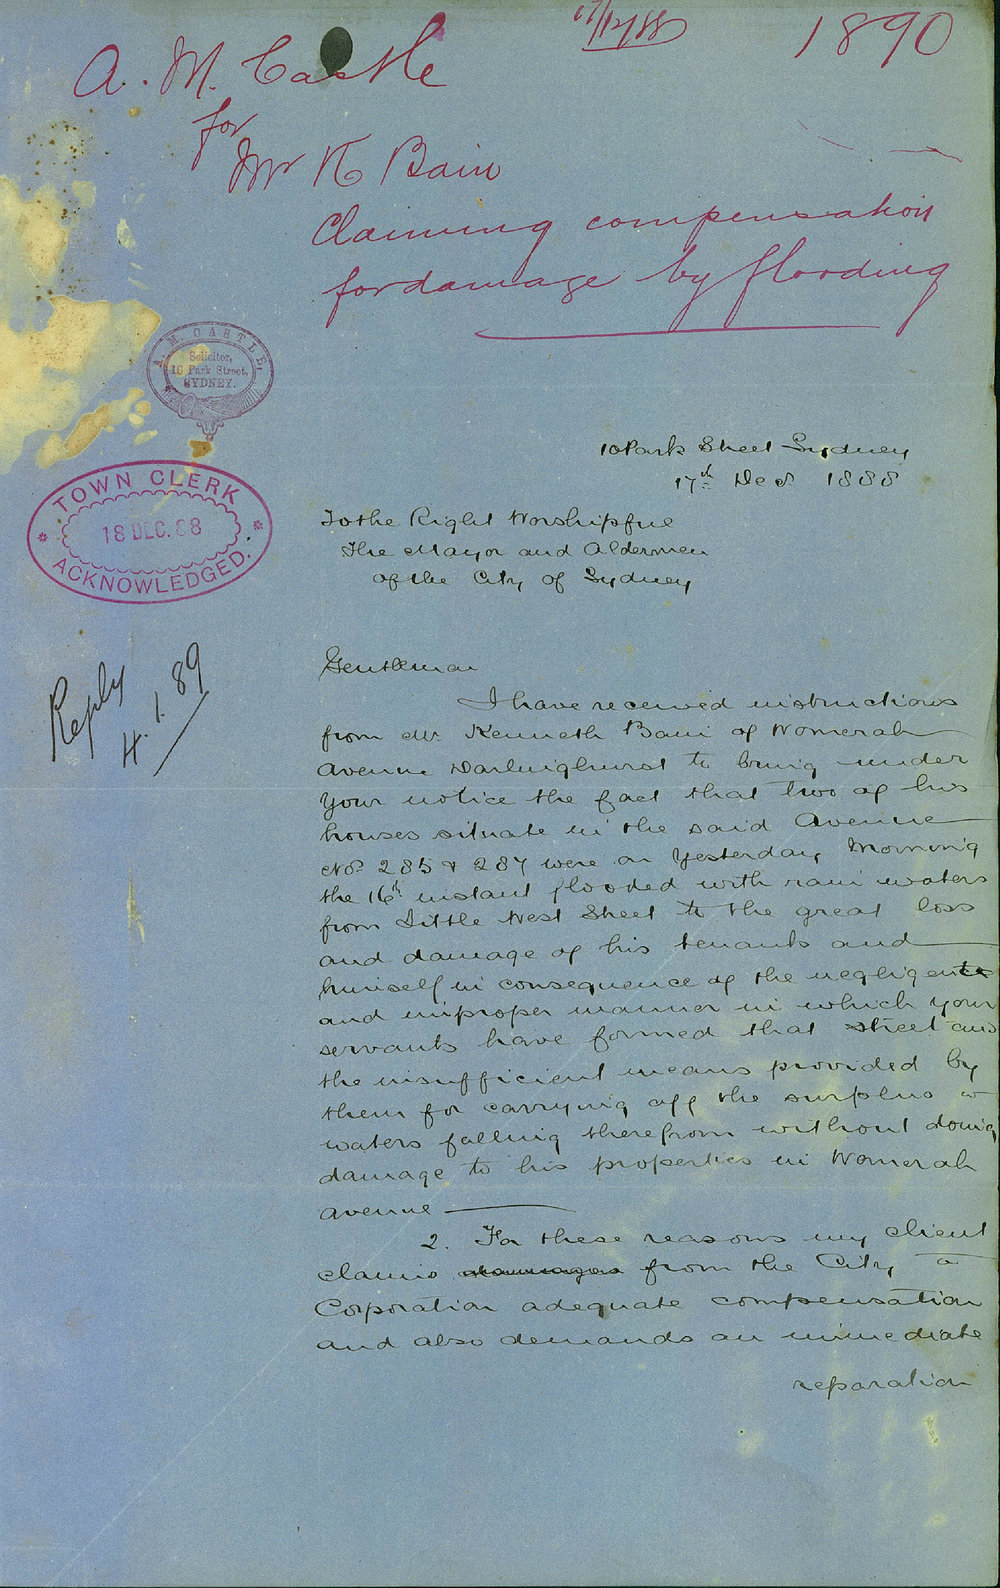 17/12/88
1890
A. M. Castle
for
Mr K Bain
Claiming compensation
for damage by flooding
A. M. CASTLE,
Solicitor,
10 Park Street,
SYDNEY.
10 Park Street Sydney
17th Decr 1888
TOWN CLERK
18 DEC. 88
ACKNOWLEDGED.
To the Right Worshipful
The Mayor and Aldermen
of the City of Sydney
Reply
4. 1. 89
Gentlemen
I have received instructions
from Mr. Kenneth Bain of Womerah
Avenue Darlinghurst to bring under
your notice the fact that two of his
houses situate in the said Avenue
Nos. 285 & 287 were on Yesterday Morning
the 16th instant flooded with rain waters
from Little West Street to the great loss
and damage of his tenants and
himself in consequence of the negligent
and improper manner in which your
servants have formed that street and
the insufficient means provided by
them for carrying off the surplus
waters falling therefrom without doing
damage to his properties in Womerah
Avenue
2. For these reasons my client
claims damages from the City
Corporation adequate compensation
and also demands an immediate
reparation